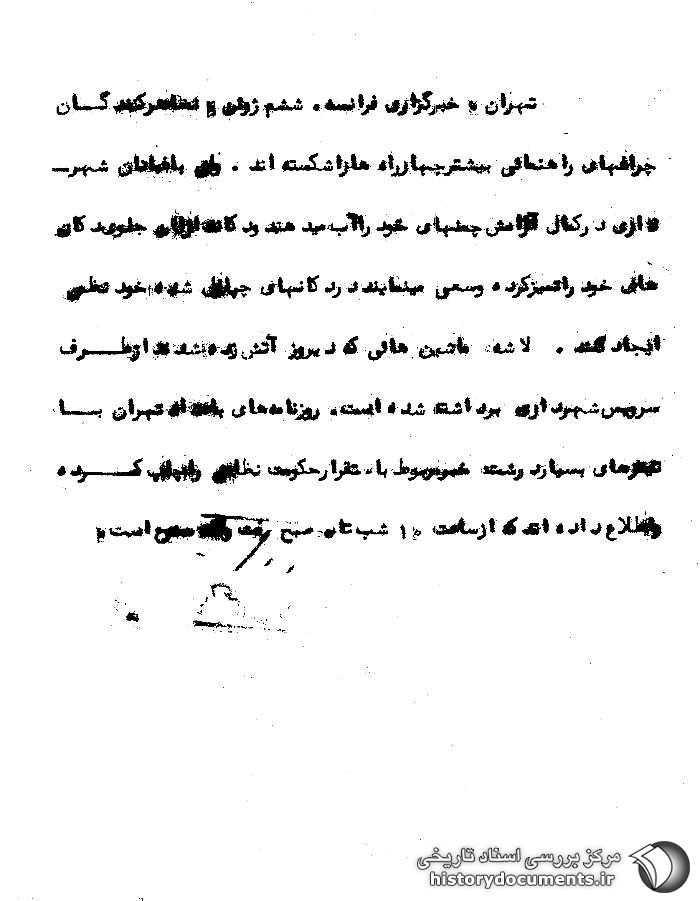 تهران - خبرگزاری فرانسه ، ششم ژوئن - تظاهرکنند گان
چراغهای راهنمائی بیشترچهارراه هاراشکسته اند . باغبانان شهر ــ
داری د رکمال آرامش چمنهای خود راآب مید هند ود کانداران جلوی د کان
های خود راتمیزکرد ه وسعی مینمایند د رد کانهای چپاول شد ه خود نظمی
ایجاد کنند . لا شه ماشین هائی که د یروز آتش زد ه شد ند ازطرف
سرویس شهرد اری برد اشته شد ه است . روزنامه‌های بامداد تهران بــا
تیترهای بسیارد رشت مربوط باستقرارحکومت نظامی راچاپ کــرد ه
واطلاع د اد ه اند که ازساعت ۱۰ شب تا صبح است
مرکز بررسی اسناد تاریخی
historydocuments.ir